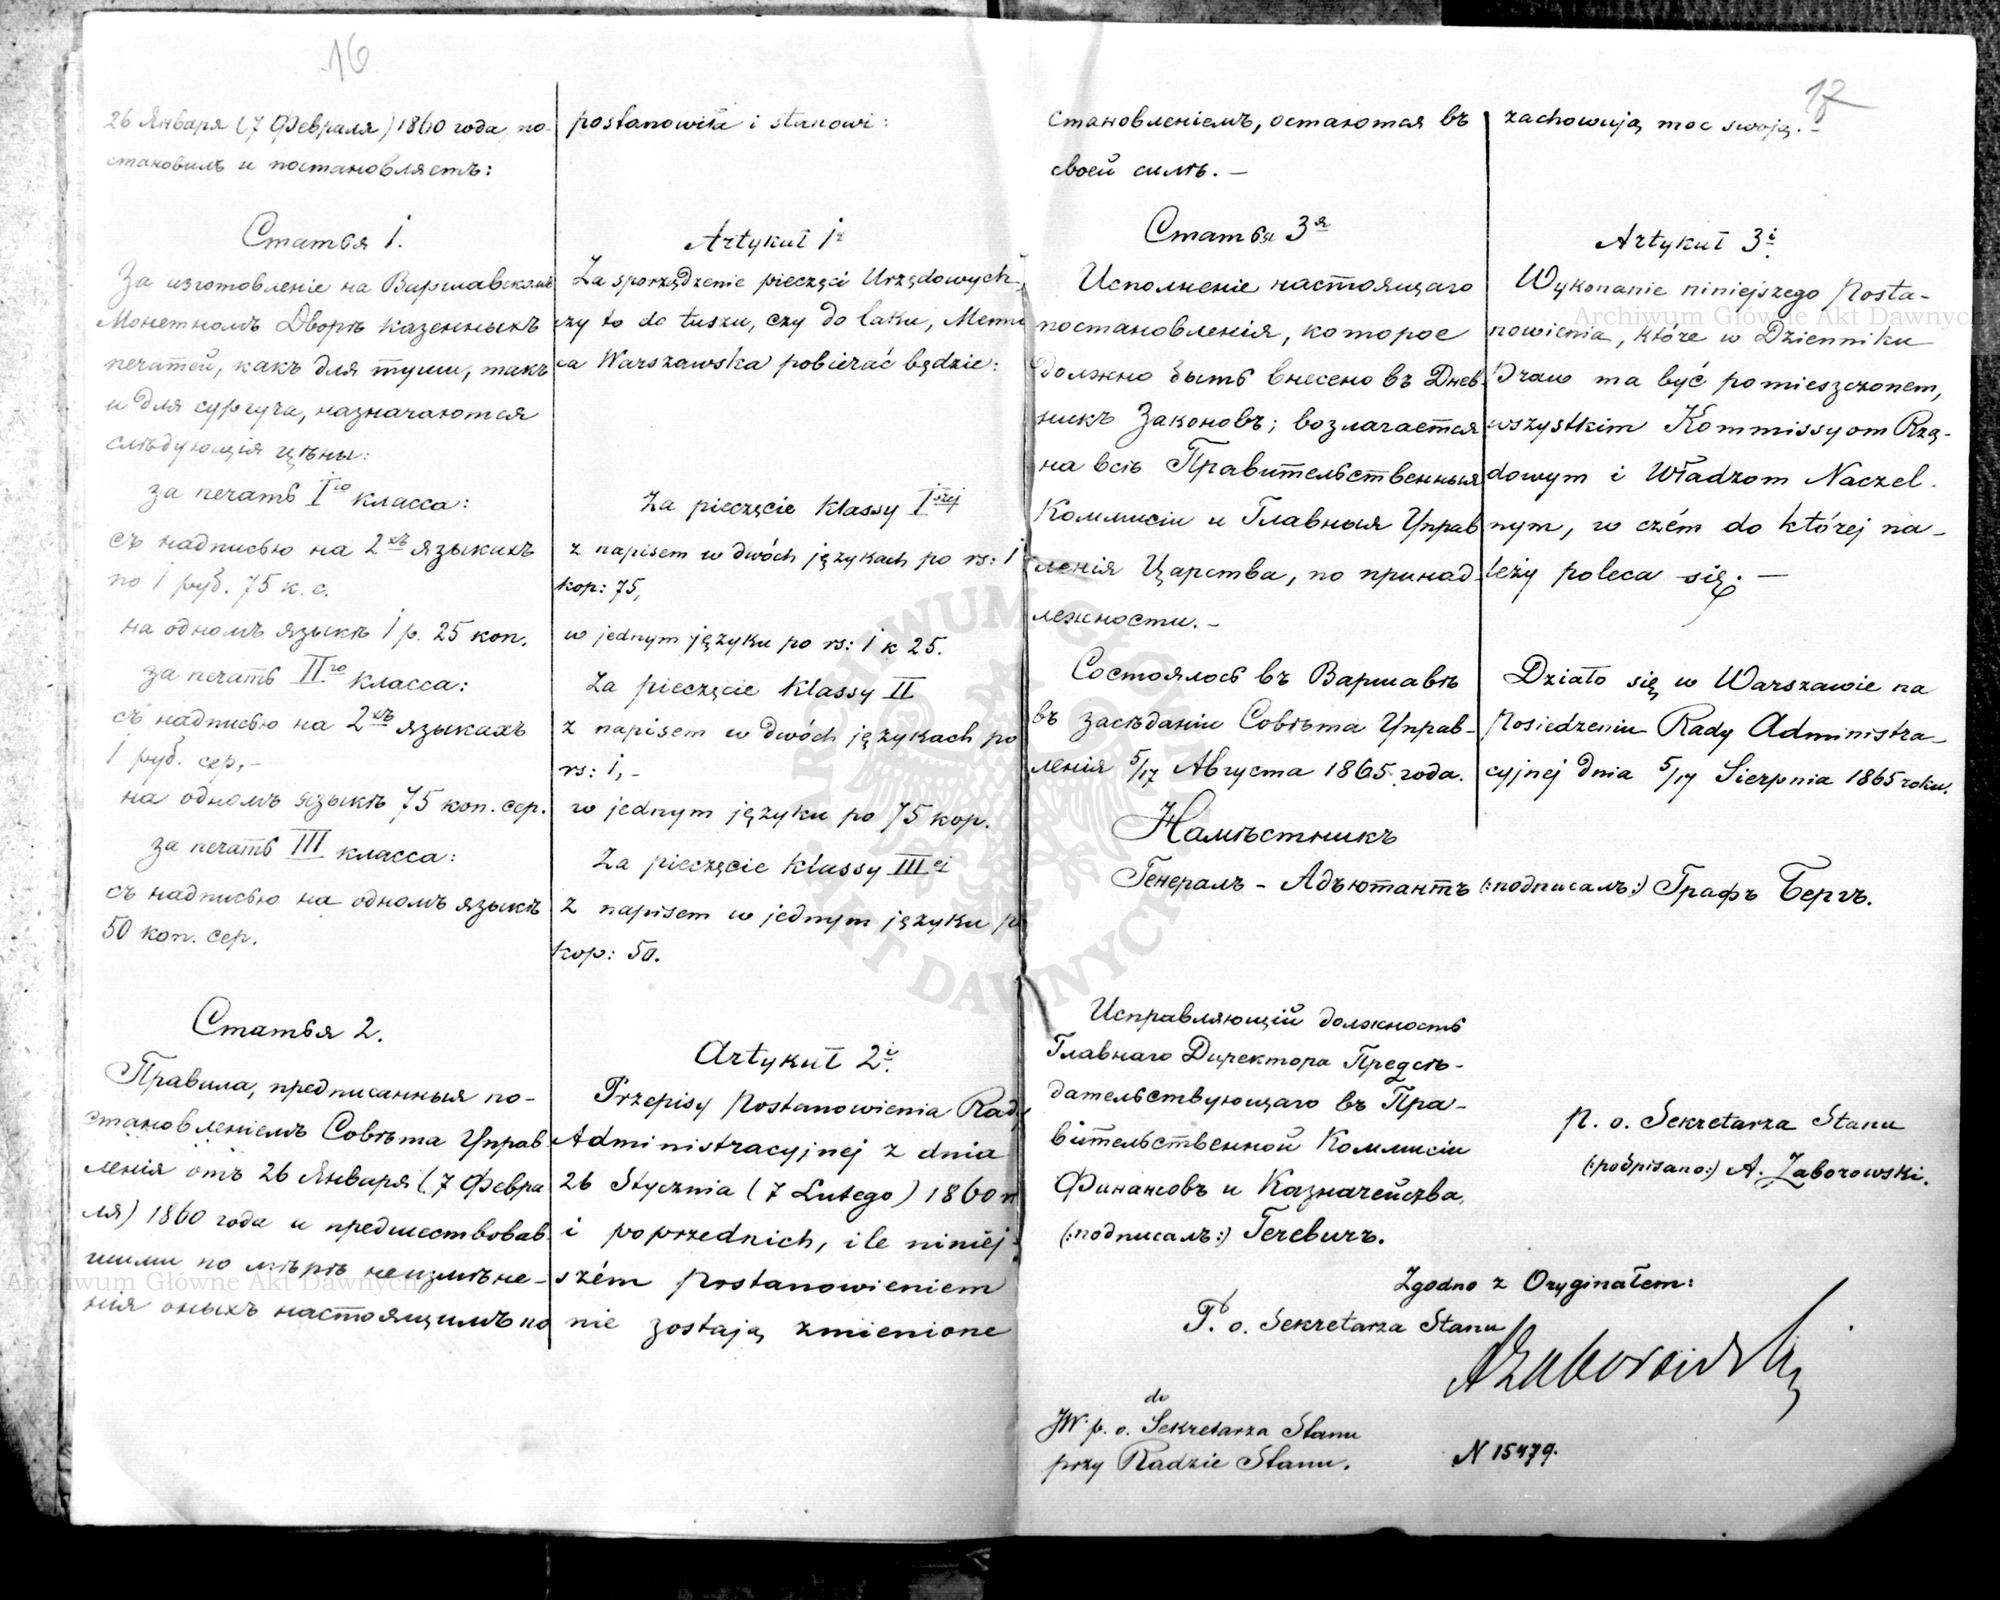 16
26 Января (7 Февраля) 1860 года, по-
становилъ и постановляетъ:
Статья 1.
За изготовленіе на Варшавскомъ
Монетномъ Дворѣ казенныхъ
печатей, какъ для туши, такъ
и для сургуча, назначаются
слѣдующія цѣны:
за печать I го класса:
съ надписью на 2хъ языкахъ
по 1 руб. 75 к. с.
на одномъ языкѣ 1 р. 25 коп.
за печать II го класса:
съ надписью на 2хъ языкахъ
1 руб. сер,-
на одномъ языкѣ 75 коп. сер.
за печать III класса:
съ надписью на одномъ языкѣ
50 коп. сер.
Статья 2.
Правила, предписанныя по-
становленіемъ Совѣта Управ
ленія отъ 26 Января (7 Февра
ля) 1860 года и предшествовав
шими по мѣрѣ неизмѣне-
нія оныхъ настоящимъ по
postanowiła i stanowi:
Artykuł 1r
Za sporządzenie pieczęci Urzędowych,
czy to do tuszu, czy do laku, Menni
ca Warszawska pobierać będzie:
Za pieczęcie klassy I szej
z napisem w dwóch językach po rs: 1
kop: 75,
w jednym języku po rs: 1 k 25.
Za pieczęcie klassy II
z napisem w dwóch językach po
rs: 1,-
w jednym języku po 75 kop.
Za pieczęcie klassy III ej
z napisem w jednym języku po
kop: 50.
Artykuł 2i
Przepisy Postanowienia Rady
Administracyjnej z dnia
26 Stycznia (7 Lutego) 1860 r
i poprzednich, ile niniej-
szém Postanowieniem
nie zostają zmienione
становленіемъ, остаются въ
своей силѣ. -
Статья 3я
Исполненіе настоящаго
постановленія, которое
должно быть внесено въ Днев
никъ Законовъ; возлагается
на всѣ Правительственныя
Коммисіи и Главныя Управ
ленія Царства, по принад-
лежности. -
Состоялось въ Варшавѣ
въ засѣданіи Совѣта Управ-
ленія 5/17 Августа 1865 года.
zachowują moc swoją. -
Artykuł 3i
Wykonanie niniejszego Posta-
nowienia, które w Dzienniku
Praw ma być pomieszczonem,
wszystkim Kommissyom Rzą-
dowym i Władzom Naczel-
nym, w czém do której na-
leży poleca się. -
Działo się w Warszawie na
Posiedzeniu Rady Administra-
cyjnej dnia 5/17 Sierpnia 1865 roku.
Намѣстникъ
Генералъ - Адъютантъ (:подписалъ:) Графъ Бергъ.
Исправляющій должность
Главнаго Директора Предсѣ-
дательствующаго въ Пра-
вительственной Коммисіи
Финансовъ и Казначейства,
(:подписалъ:) Гечевичъ.
P. o. Sekretarza Stanu
(:podpisano:) A. Zaborowski.
Zgodno z Oryginałem:
P. o. Sekretarza Stanu
AZaborowski
do
JW. p. o. Sekretarza Stanu
przy Radzie Stanu.
N 15479.
Archiwum Główne Akt Dawnych
Archiwum Główne Akt Dawnych
ARCHIWUM GŁÓWNE AKT DAWNYCH